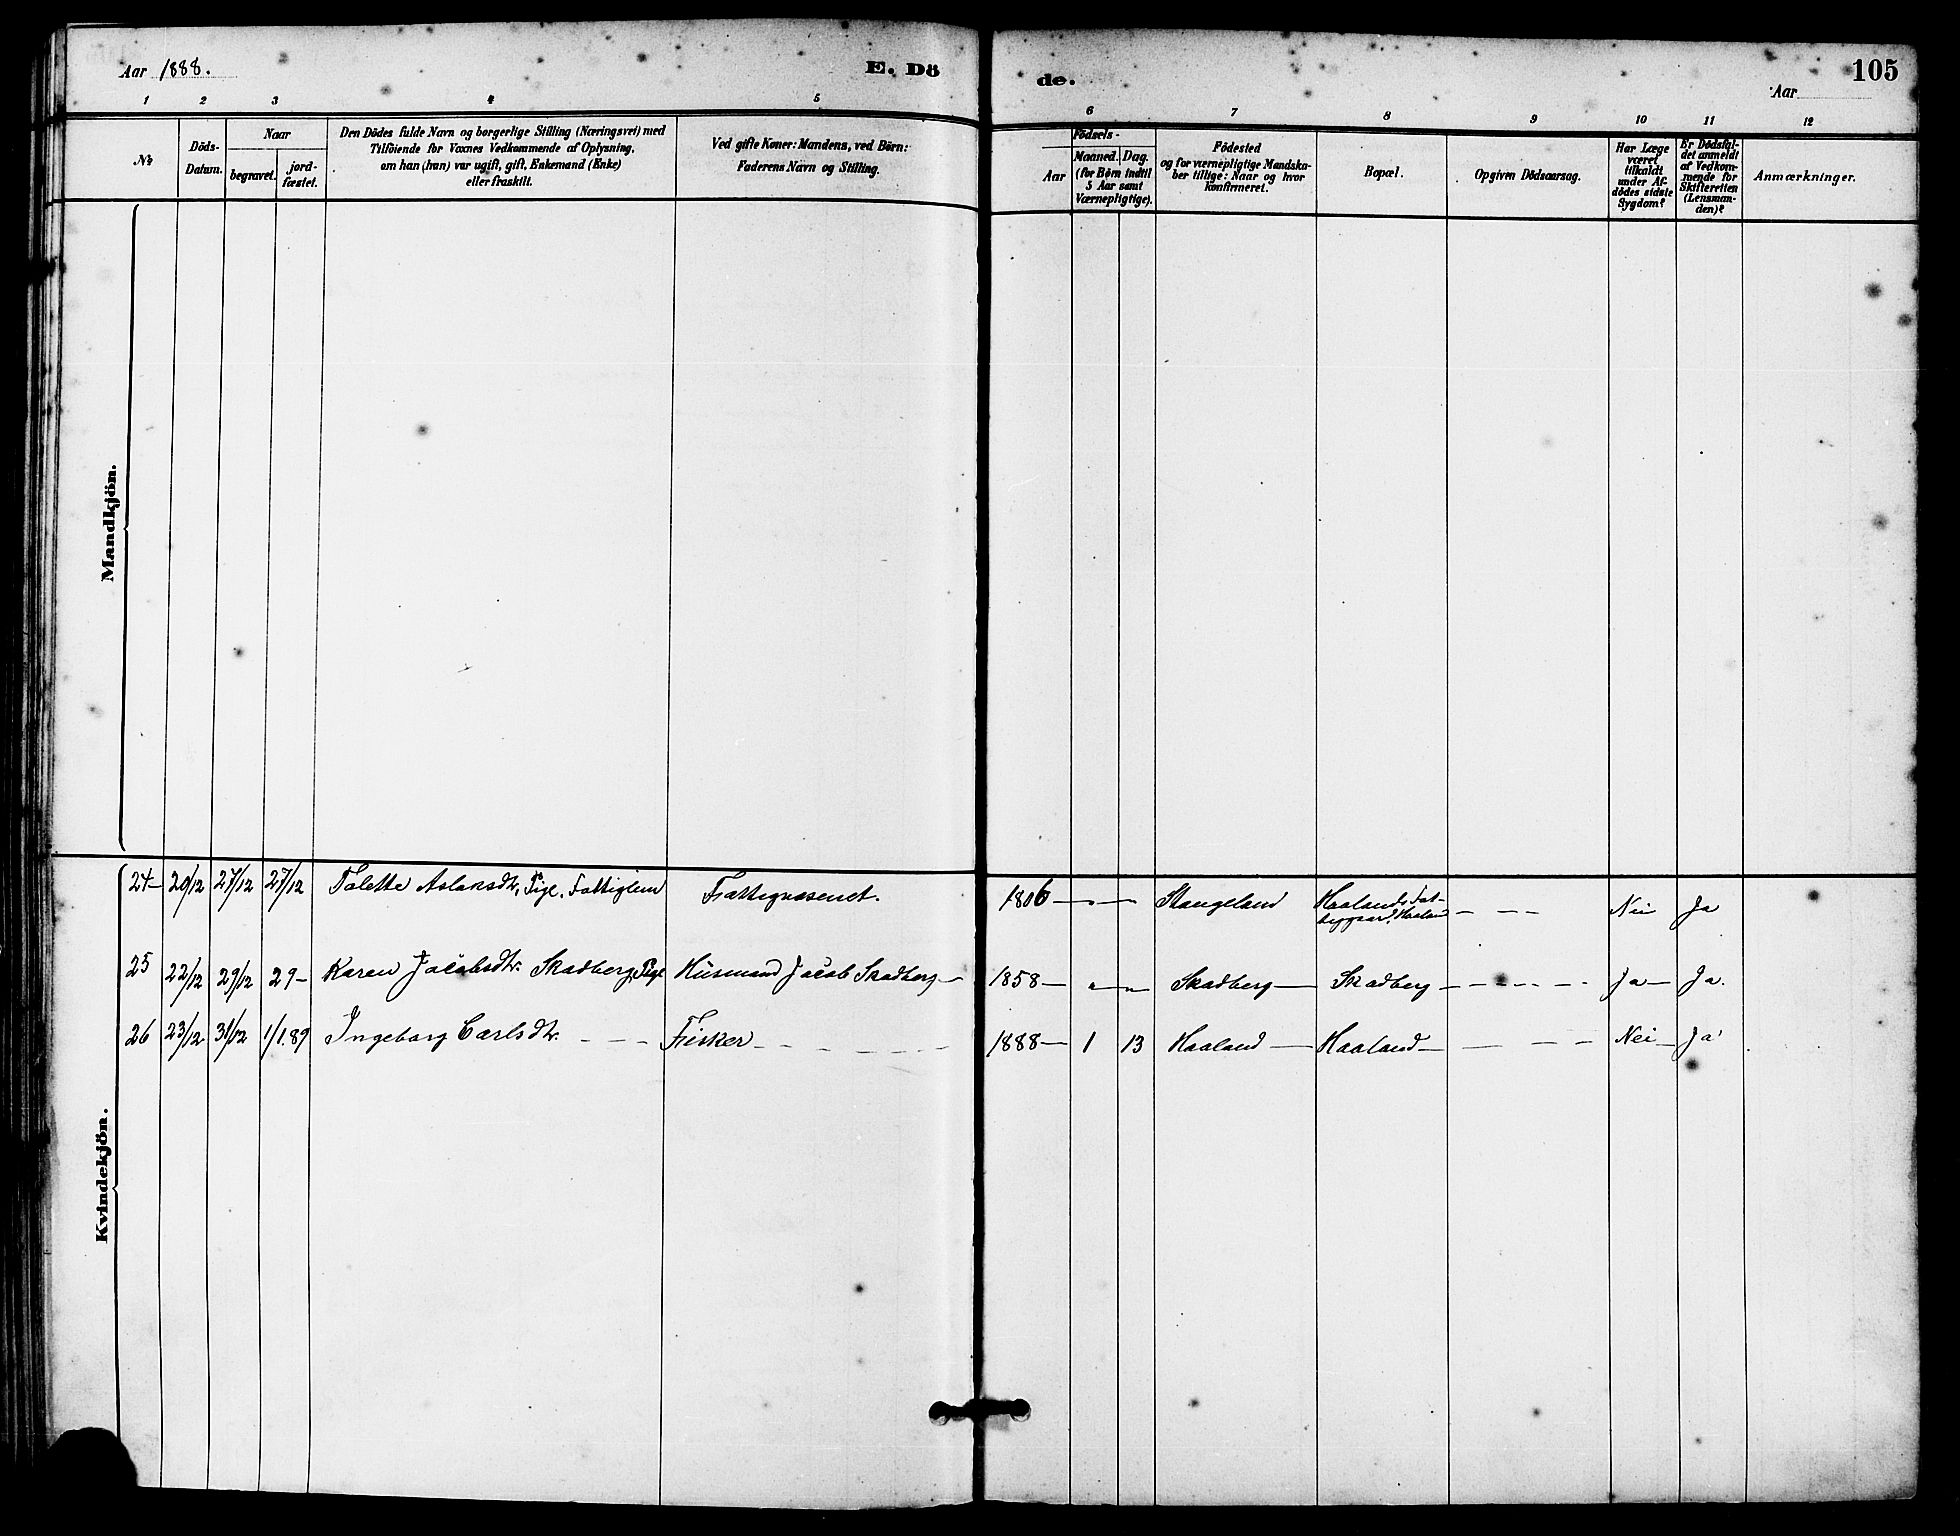 Aar 1888.
E. Dö
de.
105
Aar
1 2 3 4 5 6 7 8 9 10 11 12
No
Döds-
Datum.
Naar
begravet.
jord-
fæstet.
Den Dödes fulde Navn og borgerlige Stilling (Næringsvei) med
Tilföiende for Voxnes Vedkommende af Oplysning,
om han (hun) var ugift, gift, Enkemand (Enke)
eller fraskilt.
Ved gifte Koner: Mandens, ved Börn:
Faderens Navn og Stilling.
Födsels-
Aar
Maaned. Dag.
(for Börn indtil
5 Aar samt
Værnepligtige).
Födested
og for værnepligtige Mandska-
ber tillige: Naar og hvor
konfirmeret.
Bopæl.
Opgiven Dödsaarsag.
Har Læge
været
tilkaldt
under Af-
dödes sidste
Sygdom?
Er Dödsfal-
det anmeldt
af Vedkom-
mende for
Skifteretten
(Lensman-
den)?
Anmærkninger.
Mandkjön.
Kvindekjön.
24 20/12 27/12 27/12 Talette Aslaksdtr, Pige. Fattiglem Fattigvæsenet. 1806 — " — Stangeland Haaland — — — Nei Ja
25 22/12 29/12 29 — Karen Jacobsdtr. Skadberg, Pige Husmand Jacob Skadberg — 1858 — " — " — Skadberg — Skadberg — — — — Ja — Ja.
26 23/12 31/12 1/1.89 Ingeborg Carlsdtr. — — — Fisker — — — — 1888 — 1 13 Haaland — Haaland — — — — Nei — Ja